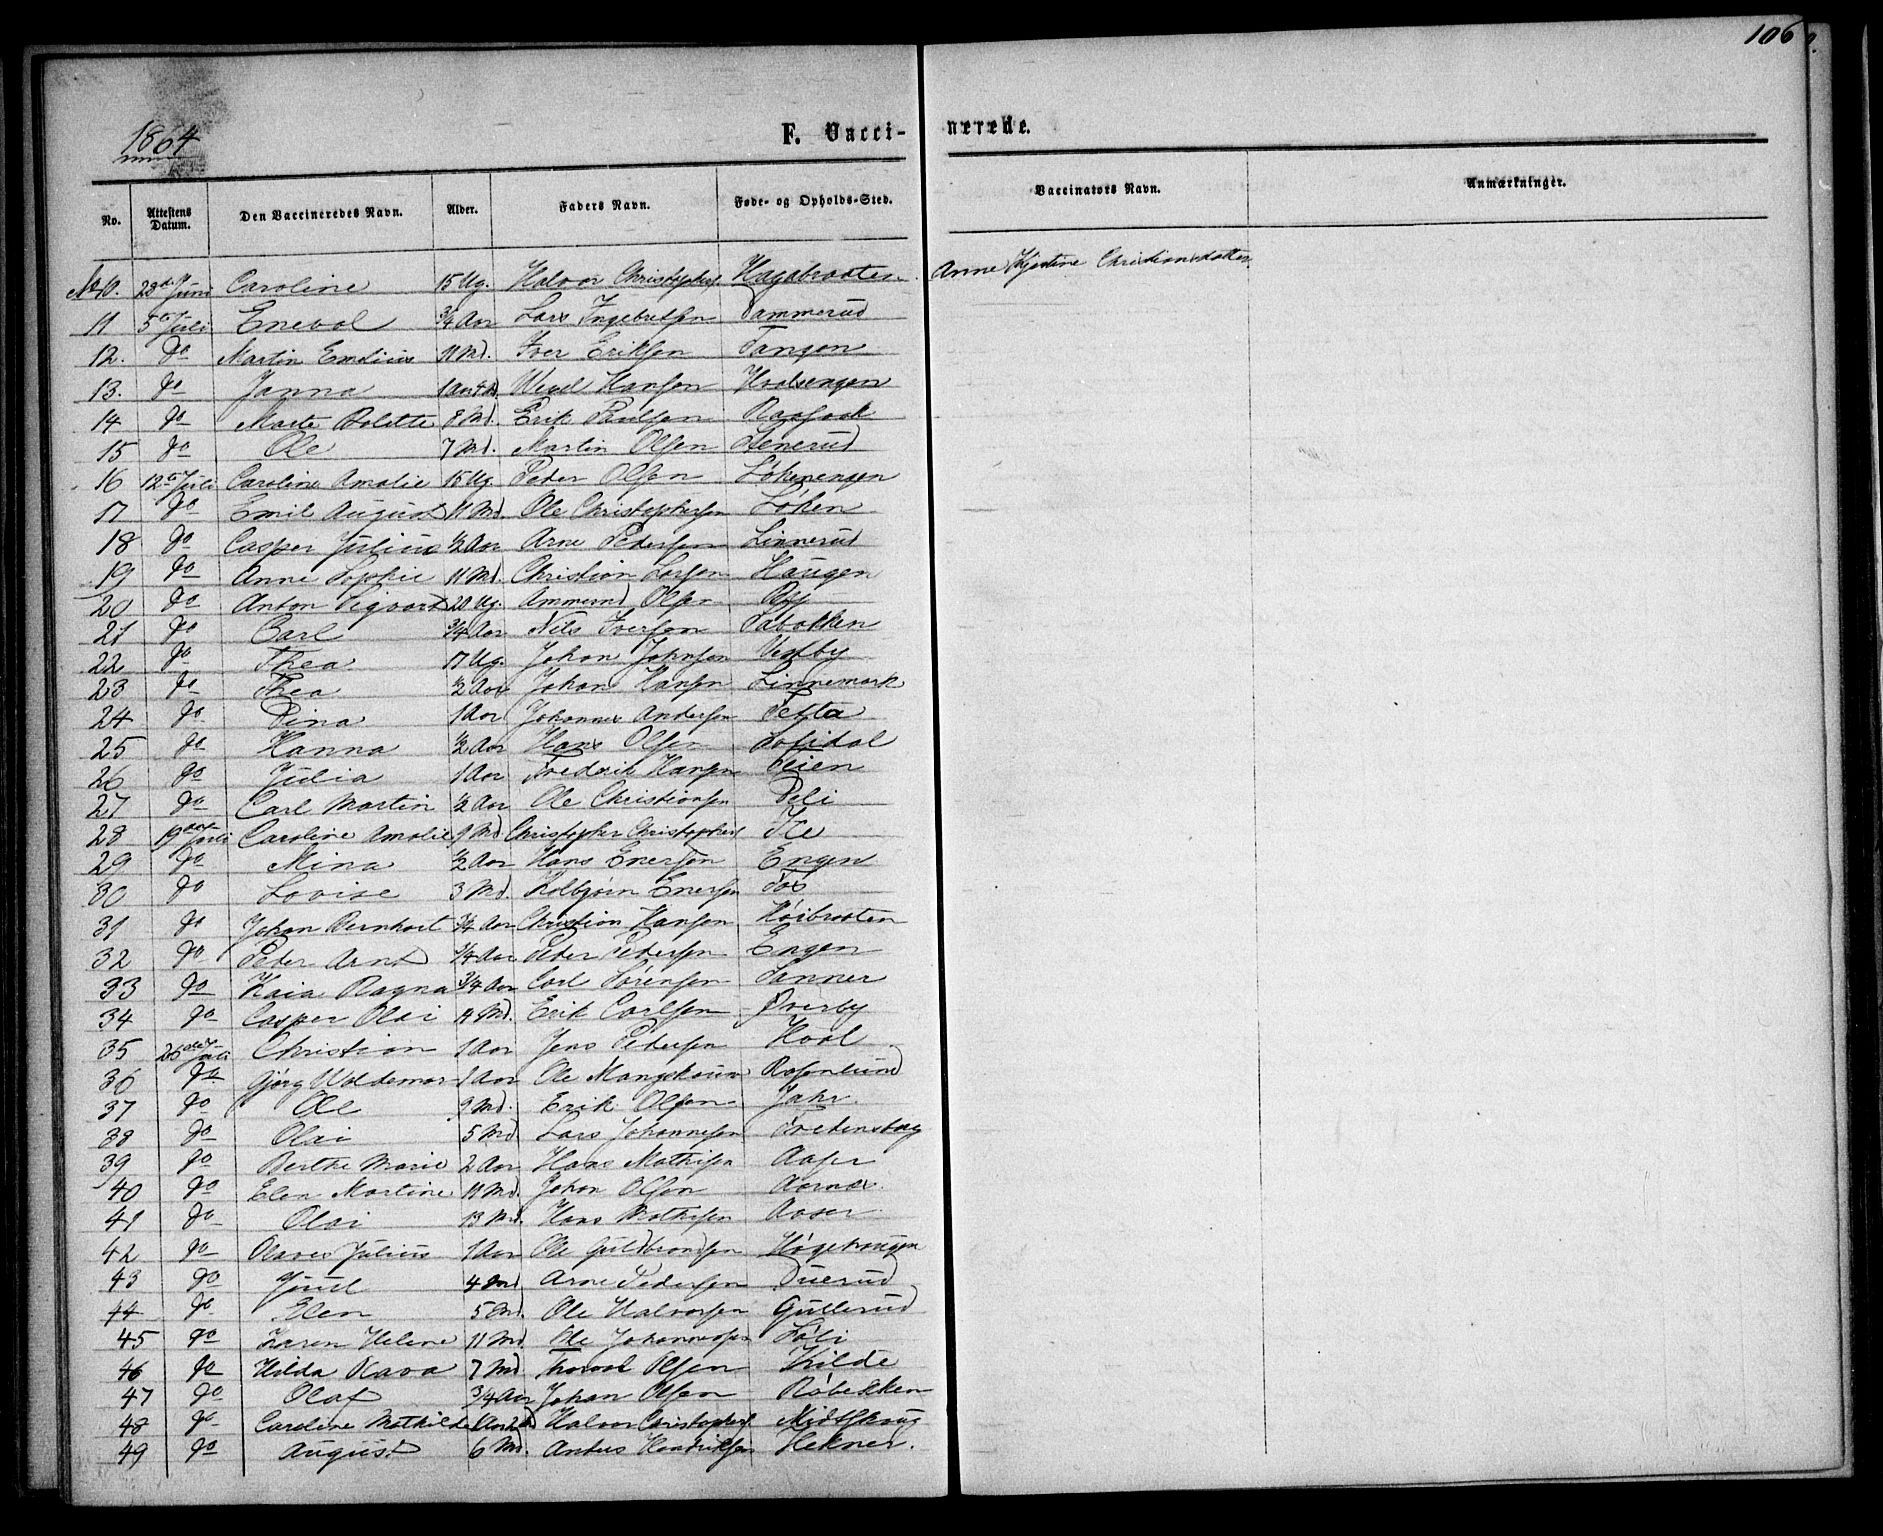 106
1864
F. Vacci- nerede.
No. Attestens Datum. Den Vaccineredes Navn. Alder. Faders Navn. Føde- og Opholds-Sted. Vaccinators Navn. Anmærkninger.
No 10. 28de Juni Caroline 15 Ug. Halvor Christophers. Hagabraaten Anne Kjerstine Christiansdatter
11 5te Juli Enevol 3/4 Aar Lars Ingebretsen Tammerud
12. do Martin Emilius 11 Md. Iver Eriksen Tangen
13. do Janna 1 Aar Hansen Hvalsengen
14 do Marte Bolette 8 Md. Erik Paulsen
15 do Ole 7 Md. Martin Olsen Stenerud
16 12te Juli Caroline Amalie 15 Ug. Peder Olsen Løkenengen
17 do Emil August 11 Md. Ole Christophersen Løken
18 do Casper Julius 1/2 Aar Arne Pedersen Linnerud
19 do Anne Sophie 11 Md. Christian Larsen Haugen
20 do Anton Sigvart 20 Ug. Ammund Olsen By
21 do Carl 3/4 Aar Nils Iversen
22 do Thea 17 Ug. Johan Johnsen Vestby
23 do Thea 1/2 Aar Johan Hansen Linnemark
24 do Dina 1 Aar Johannes Andersen
25 do Hanna 1/2 Aar Hans Olsen Lofsdal
26 do Julia 1 Aar Fredrik Hansen
27 do Carl Martin 1/2 Aar Ole Christiansen
28 19de Juli Caroline Amalie 9 Md Christopher Christophers.
29 do Mina 1/2 Aar Hans Enersen Engen
30 do Lovise 3 Md. Kolbjørn Enersen
31 do Johan Bernhart 3/4 Aar Christian Hansen Høibraaten
32 do Peder Arnt 1/4 Aar Peder Pedersen Engen
33 do Kaia Ragna 3/4 Aar Carl Sørensen Sanner
34 do Casper Olai Md. Erik Carlsen Øverby
35 26de Juli Christian 1 Aar Jens Pedersen Hval
36 do Gjørg Woldemar 1 Aar Ole Rosenlund
37 do Ole 9 Md. Erik Olsen Jahr.
38 do Olai 5 Md Lars Johannesen Fredensborg
39 do Berthe Marie 2 Aar Hans Mathisen Aaser
40 do Elen Martine 11 Md. Johan Olsen Aarnæs.
41 do Olai 13 Md. Hans Mathisen Aaser
42 do Olaves Julius 1 Aar Ole Guldbrandsen Høgehaugen
43 do Juul 4 Md Arne Pedersen Duerud
44 do Elen 5 Md. Ole Halvorsen Gullerud
45 do Karen Helene 11 Md. Ole Johannesen
46 do Hilda Olava 7 Md Olsen Kilde
47 do Olaf 3/4 Aar Johan Olsen Røbekken
48 do Caroline Mathilde Halvor Christophers. Midtskoug
49 do August 6 Md. Anders Hendriksen Hekner.